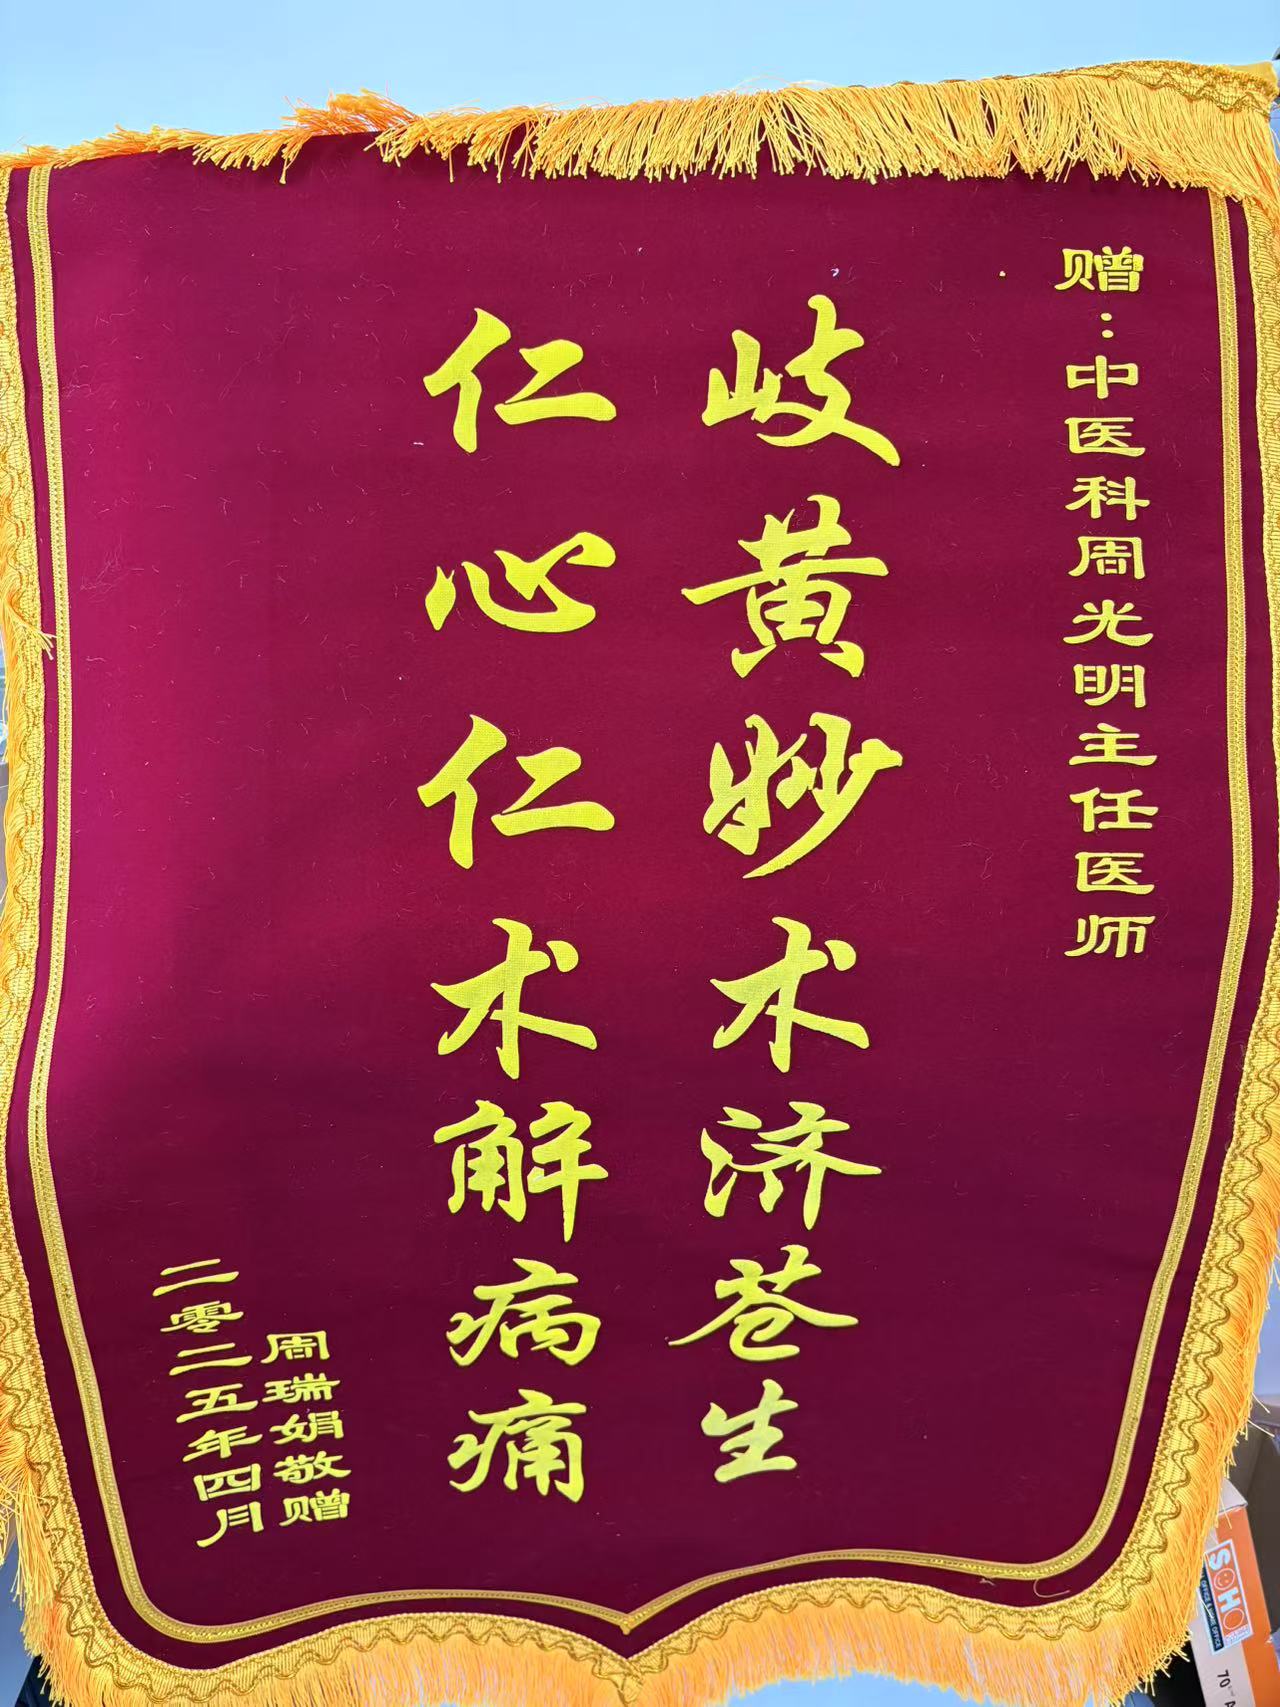 赠：中医科周光明主任医师
岐黄妙术济苍生
仁心仁术解病痛
周瑞娟敬赠
二零二五年四月
SOHO
OFFICE & HOME OFFICE
70